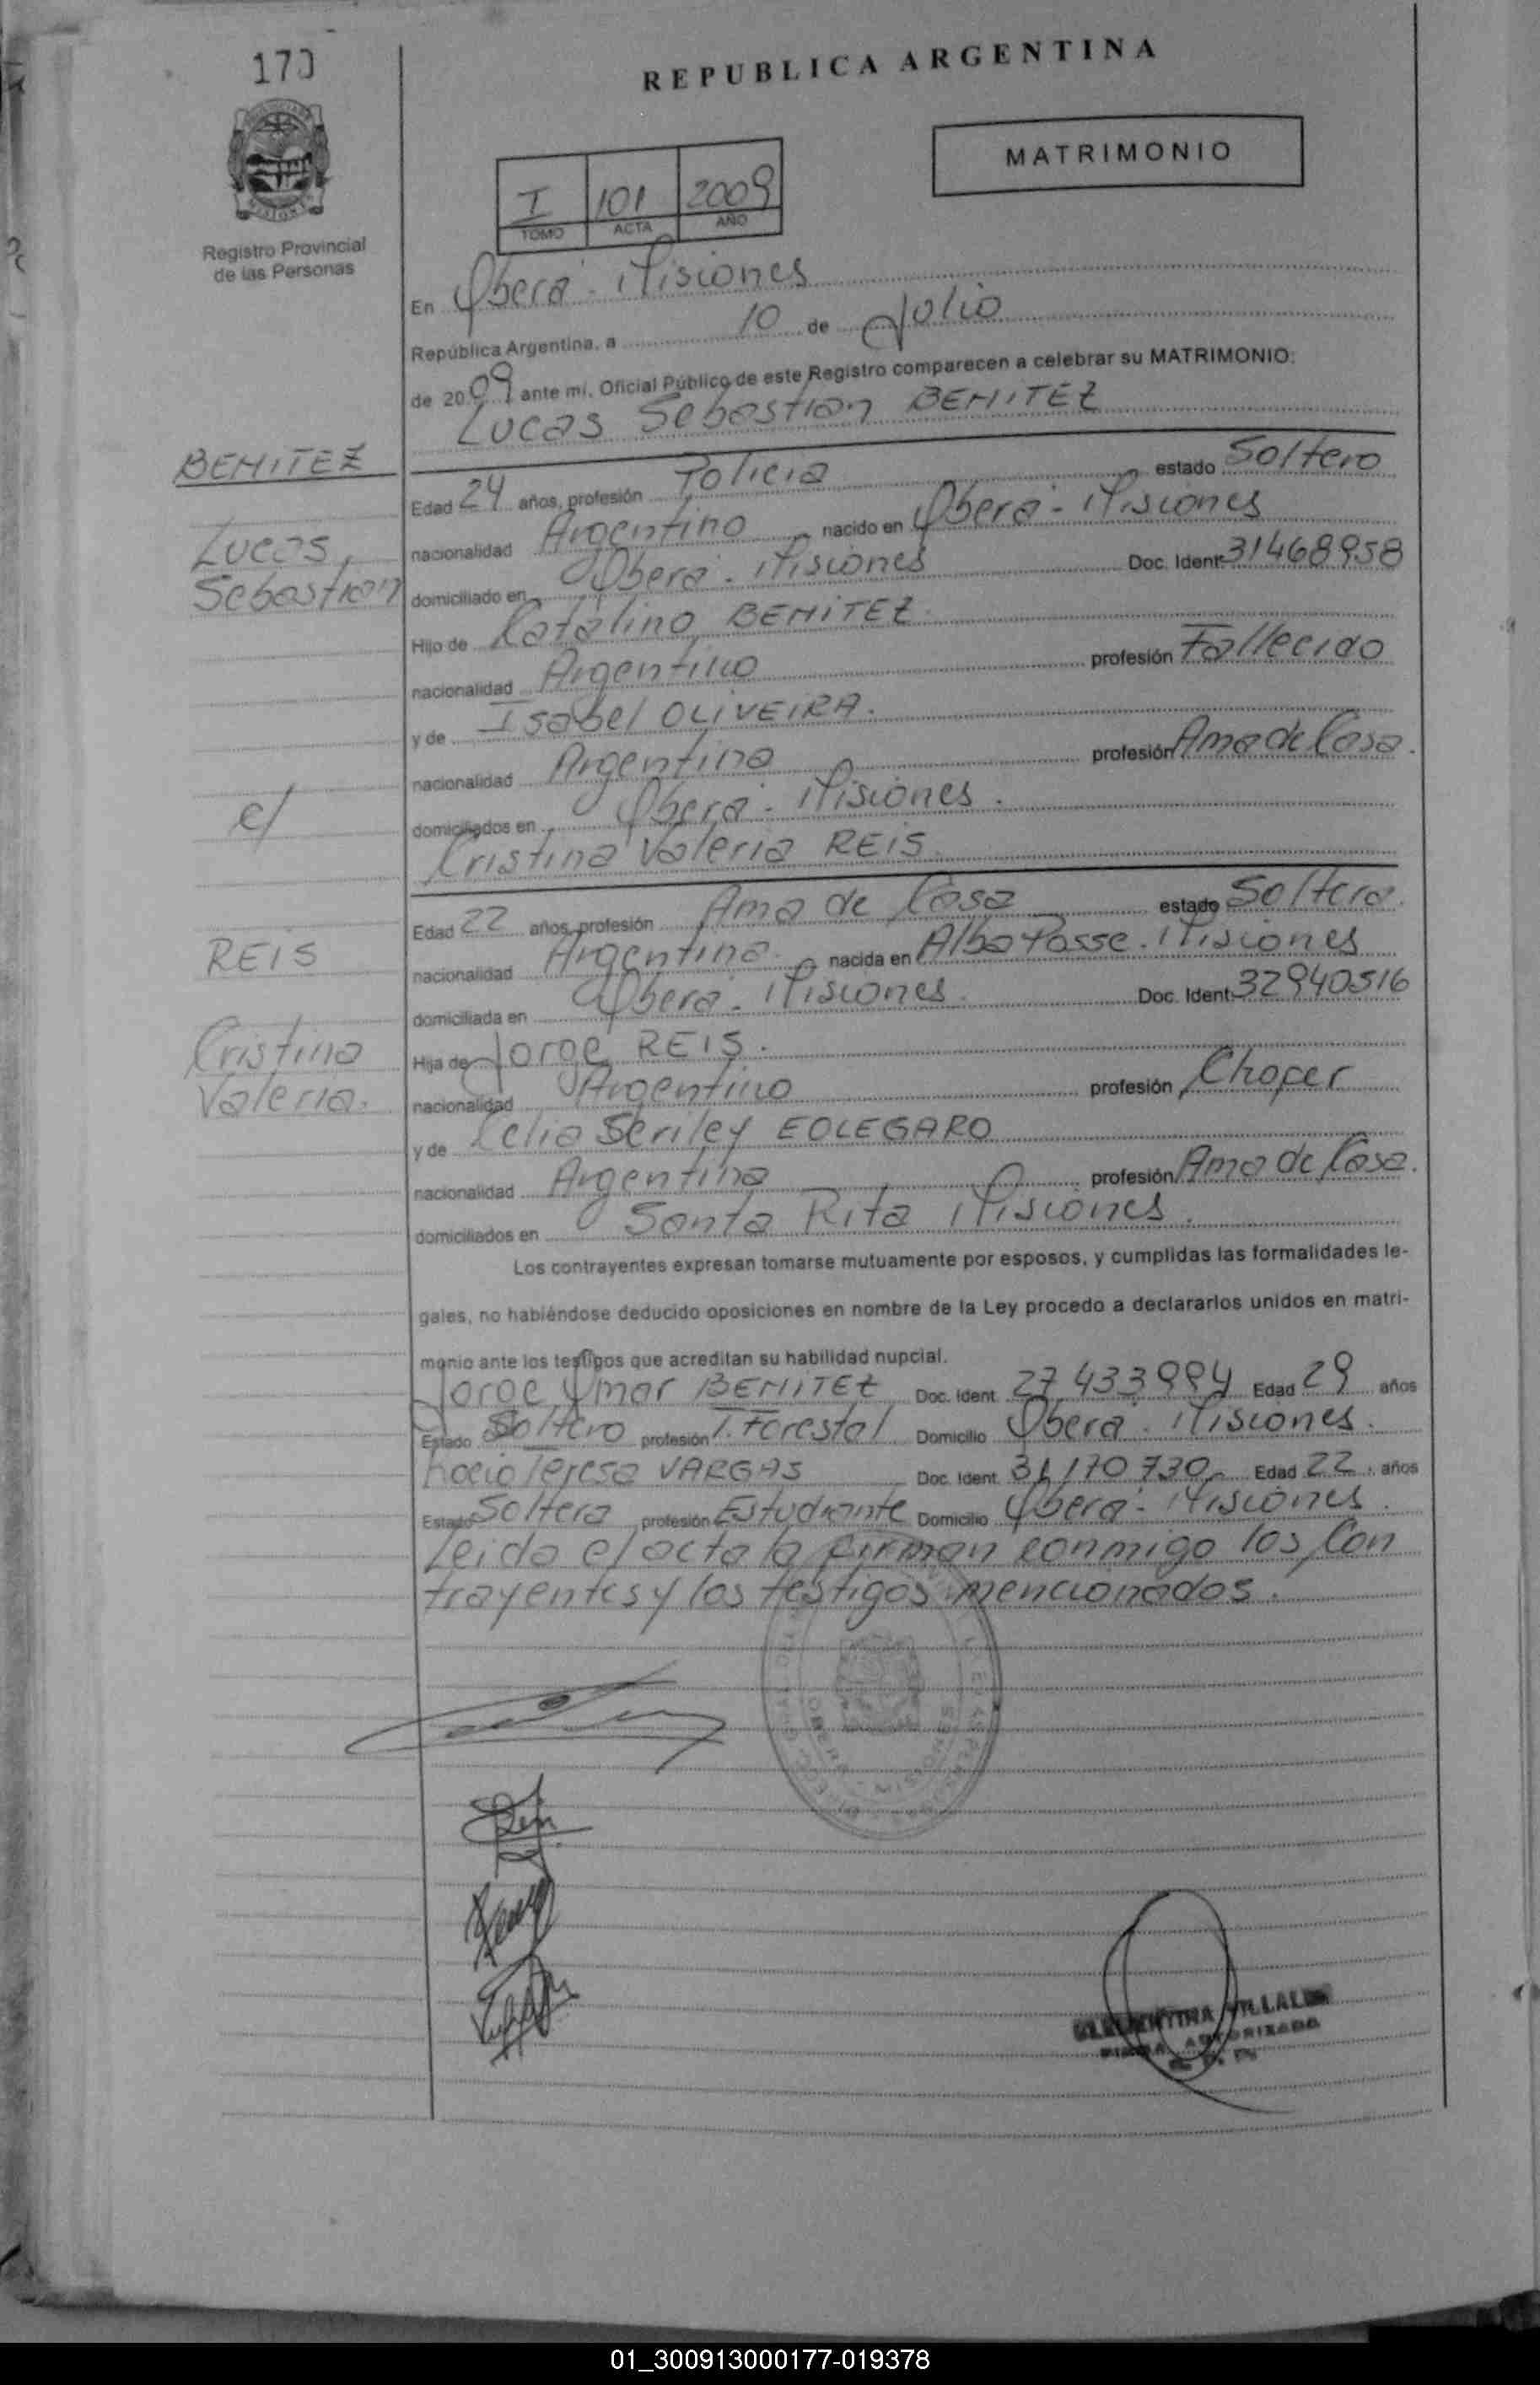 170
REPUBLICA ARGENTINA
MATRIMONIO
I 101 2009
TOMO ACTA AÑO
Registro Provincial
de las Personas
En Oberá - Misiones
República Argentina, a 10 de Julio
de 2009 ante mi, Oficial Público de este Registro comparecen a celebrar su MATRIMONIO:
Lucas Sebastian BENITEZ
BENITEZ
Lucas,
Sebastian
Edad 24 años, profesión Policia estado Soltero
nacionalidad Argentino nacido en Oberá - Misiones
domiciliado en Oberá - Misiones Doc. Ident. 31468958
Hijo de Catalino BENITEZ.
nacionalidad Argentino profesión Fallecido
y de Isabel OLIVEIRA.
nacionalidad Argentina profesión Ama de Casa.
domiciliados en Oberá - Misiones.
c/
Cristina Valeria REIS.
Edad 22 años, profesión Ama de Casa estado Soltera.
REIS
nacionalidad Argentina. nacida en Alba Posse. Misiones
domiciliada en Oberá - Misiones. Doc. Ident. 32940516
Cristina
Valeria.
Hija de Jorge REIS.
nacionalidad Argentino profesión Chofer
y de Celia Seriley EOLEGARO
nacionalidad Argentina profesión Ama de Casa.
domiciliados en Santa Rita Misiones.
Los contrayentes expresan tomarse mutuamente por esposos, y cumplidas las formalidades le-
gales, no habiéndose deducido oposiciones en nombre de la Ley procedo a declararlos unidos en matri-
monio ante los testigos que acreditan su habilidad nupcial.
Jorge Omar BENITEZ Doc. Ident. 27 433 994 Edad 29 años
Estado Soltero profesión I. Forestal Domicilio Oberá - Misiones.
Rocio Teresa VARGAS Doc. Ident. 31 170 730 Edad 22 años
Estado Soltera profesión Estudiante Domicilio Oberá - Misiones.
Leida el acta la firman conmigo los Con
trayentes y los testigos mencionados.
FIRMA AUTORIZADA
01_300913000177-019378